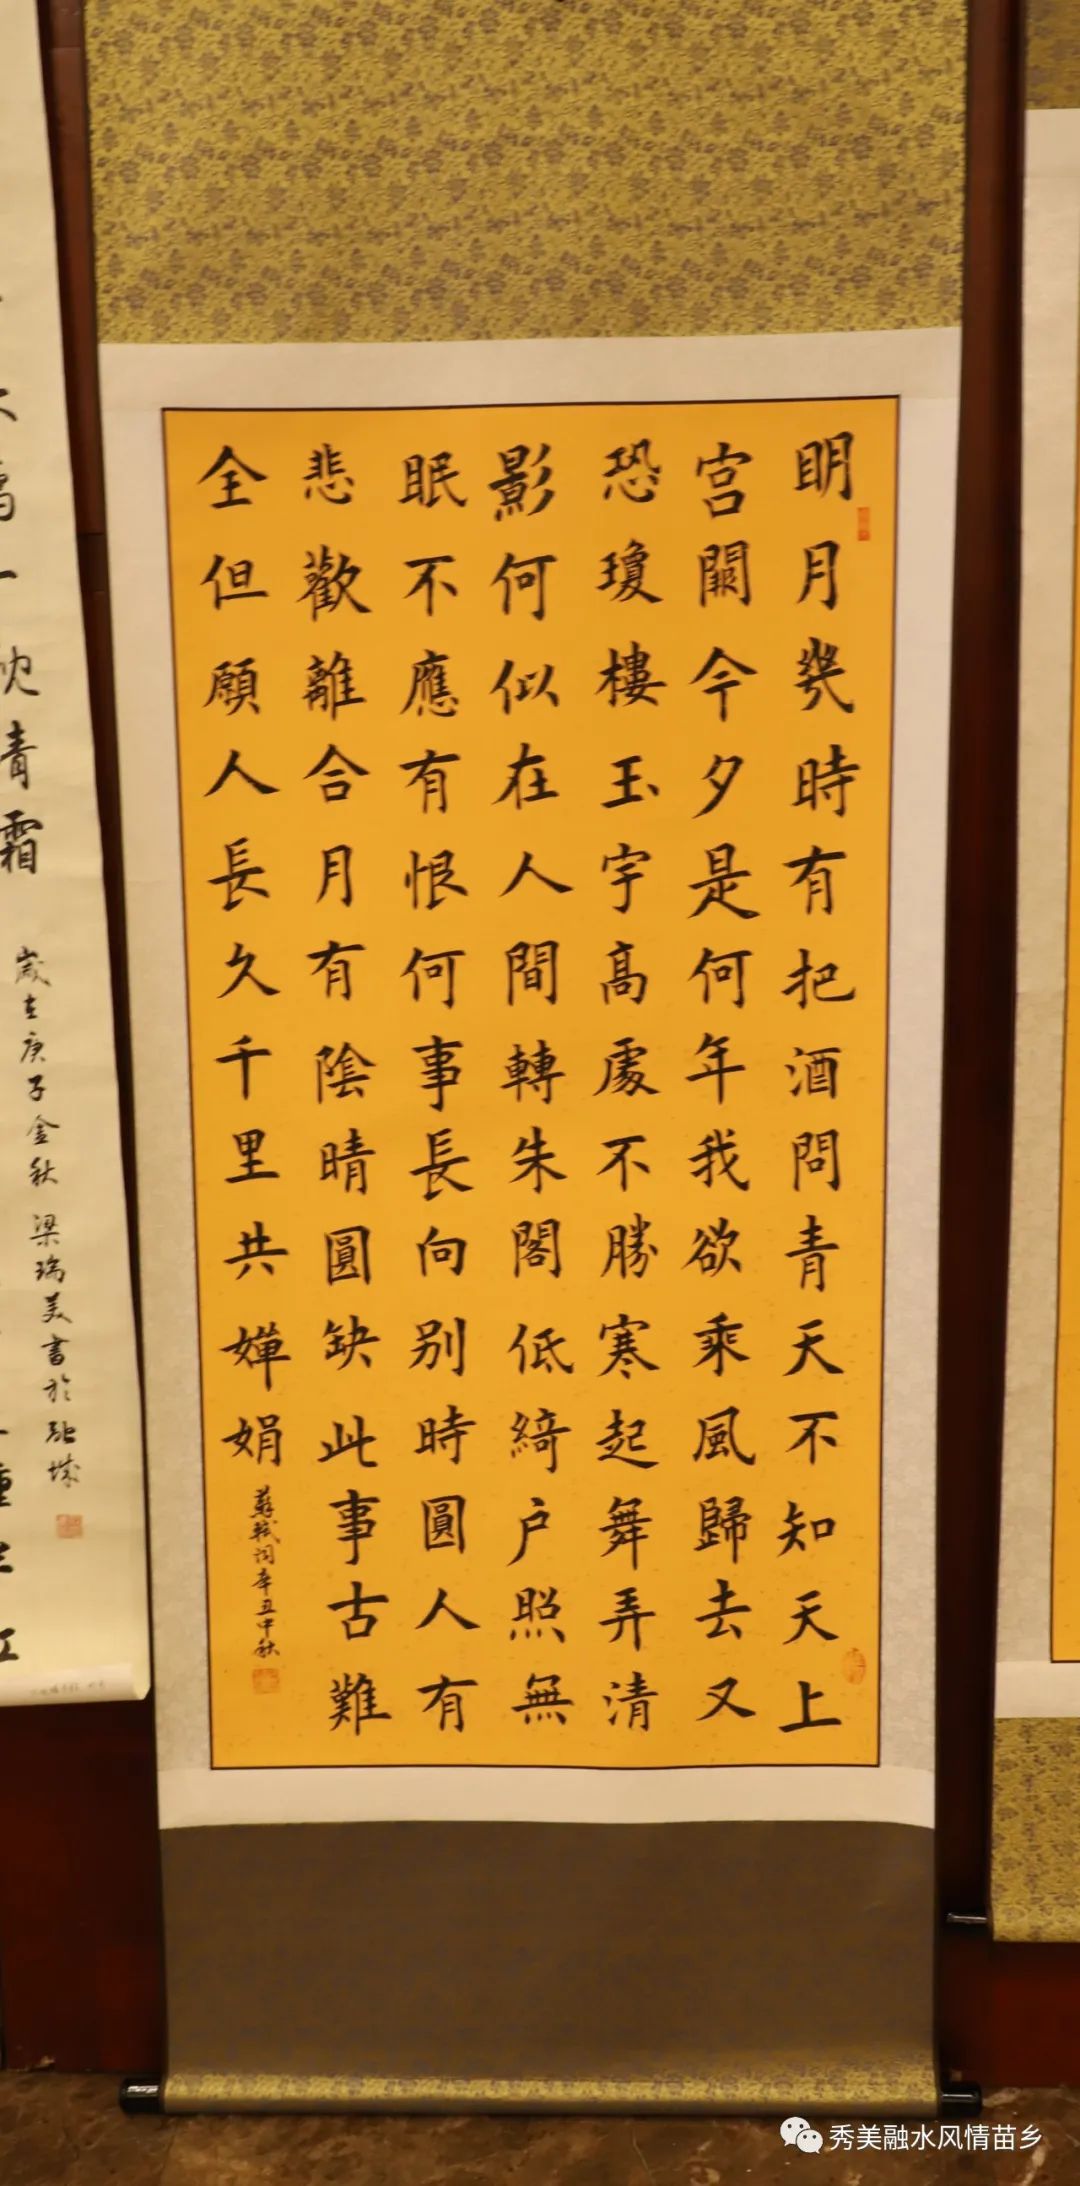 明月幾時有把酒問青天不知天上
宮闕今夕是何年我欲乘風歸去又
恐瓊樓玉宇高處不勝寒起舞弄清
影何似在人間轉朱閣低綺户照無
眠不應有恨何事長向别時圓人有
悲歡離合月有陰晴圓缺此事古難
全但願人長久千里共嬋娟
蘇軾詞辛丑中秋
青霜
歲在庚子金秋梁瑞美書於融城
秀美融水风情苗乡